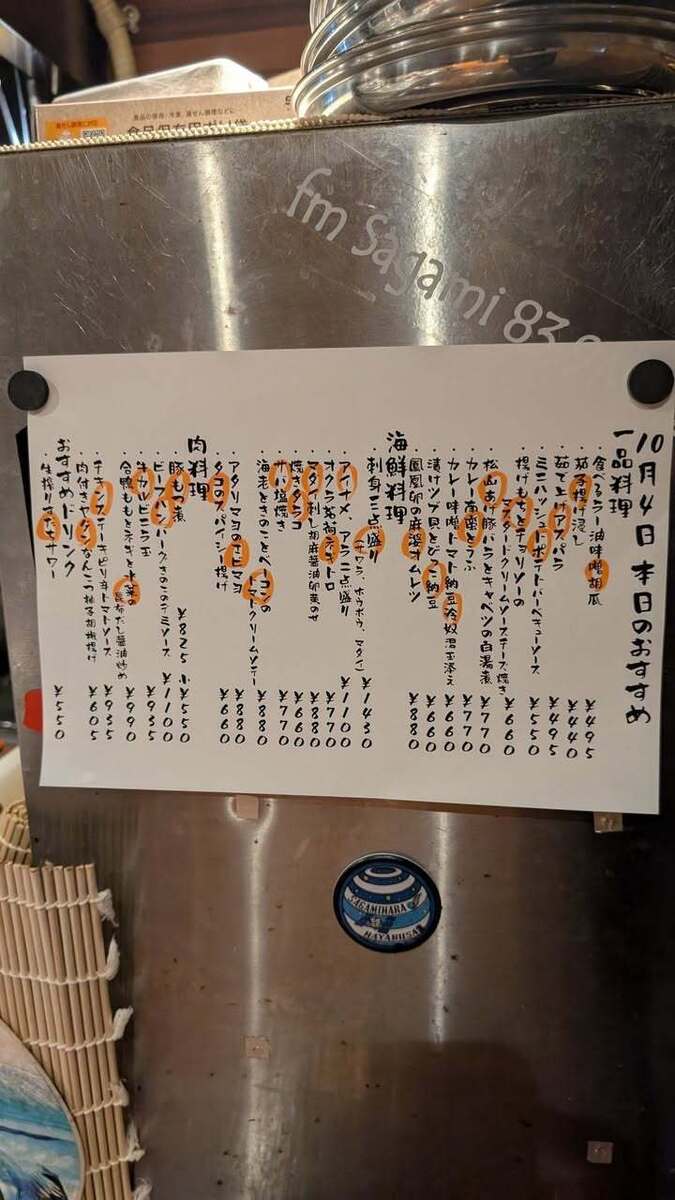 食品保存用ポリ袋
fm Sagami 83.
10月4日 本日のおすすめ
一品料理
・食べるラー油味噌胡瓜 ¥495
・茄子揚げ浸し ¥440
・茹で上げアスパラ ¥495
・ミニハッシュドポテトバーベキューソース ¥550
・揚げもちとチョリソーの
マスタードクリームソースチーズ焼き ¥660
・松山あげ豚バラとキャベツの白湯煮 ¥770
・カレー高菜とうふ ¥770
・カレー味噌トマト納豆冷奴温玉添え ¥660
・漬けツブ貝ととびっこ納豆 ¥660
・鳳凰卵の麻婆オムレツ ¥880
海鮮料理
・刺身三点盛り(サワラ、ホウボウ、マダイ) ¥1430
・アイナメ、アラ二点盛り ¥1100
・オクラ茗荷ネギトロ ¥770
・マダイ刺し胡麻醤油卵黄のせ ¥880
・焼きタラコ ¥660
・サバ塩焼き ¥770
・海老ときのことベーコンの
トマトクリームソテー ¥880
・アタリマヨのエビマヨ ¥880
・タコのスパイシー揚げ ¥660
肉料理
・豚もつ煮 ¥825 小¥550
・ビーフハンバーグきのこのデミソース ¥1100
・牛カルビニラ玉 ¥935
・合鴨ももとネギと水菜の
昆布だし醤油炒め ¥990
・チキンステーキピリ辛トマトソース ¥935
・肉付きヤゲンなんこつ柚子胡椒揚げ ¥605
おすすめドリンク
・生搾りすだちサワー ¥550
SAGAMIHARA
HAYABUSA